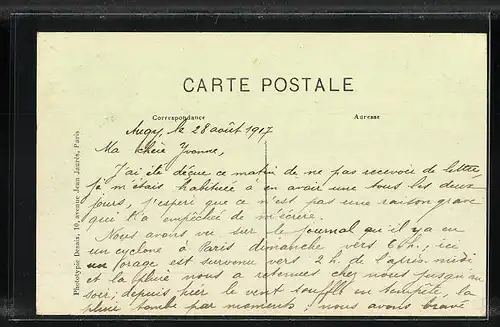 CARTE POSTALE
Correspondance
Adresse
Augy, le 28 août 1917
Ma chère Yvonne,
J'ai été déçue ce matin de ne pas recevoir de lettre,
je m'étais habituée à en avoir une tous les deux
jours, j'espère que ce n'est pas une raison grave
qui t'a empêchée de m'écrire.
Nous avons vu sur le journal qu'il y a eu
un cyclone à Paris dimanche vers 6h, ici
un orage est survenu vers 2 h. de l'après-midi
et la pluie nous a retenues chez nous jusqu'au
soir; depuis hier le vent souffle en tempête, la
pluie tombe par moments; nous avons bravé
Phototypie Desaix, 10, avenue Jean Jaurès, Paris